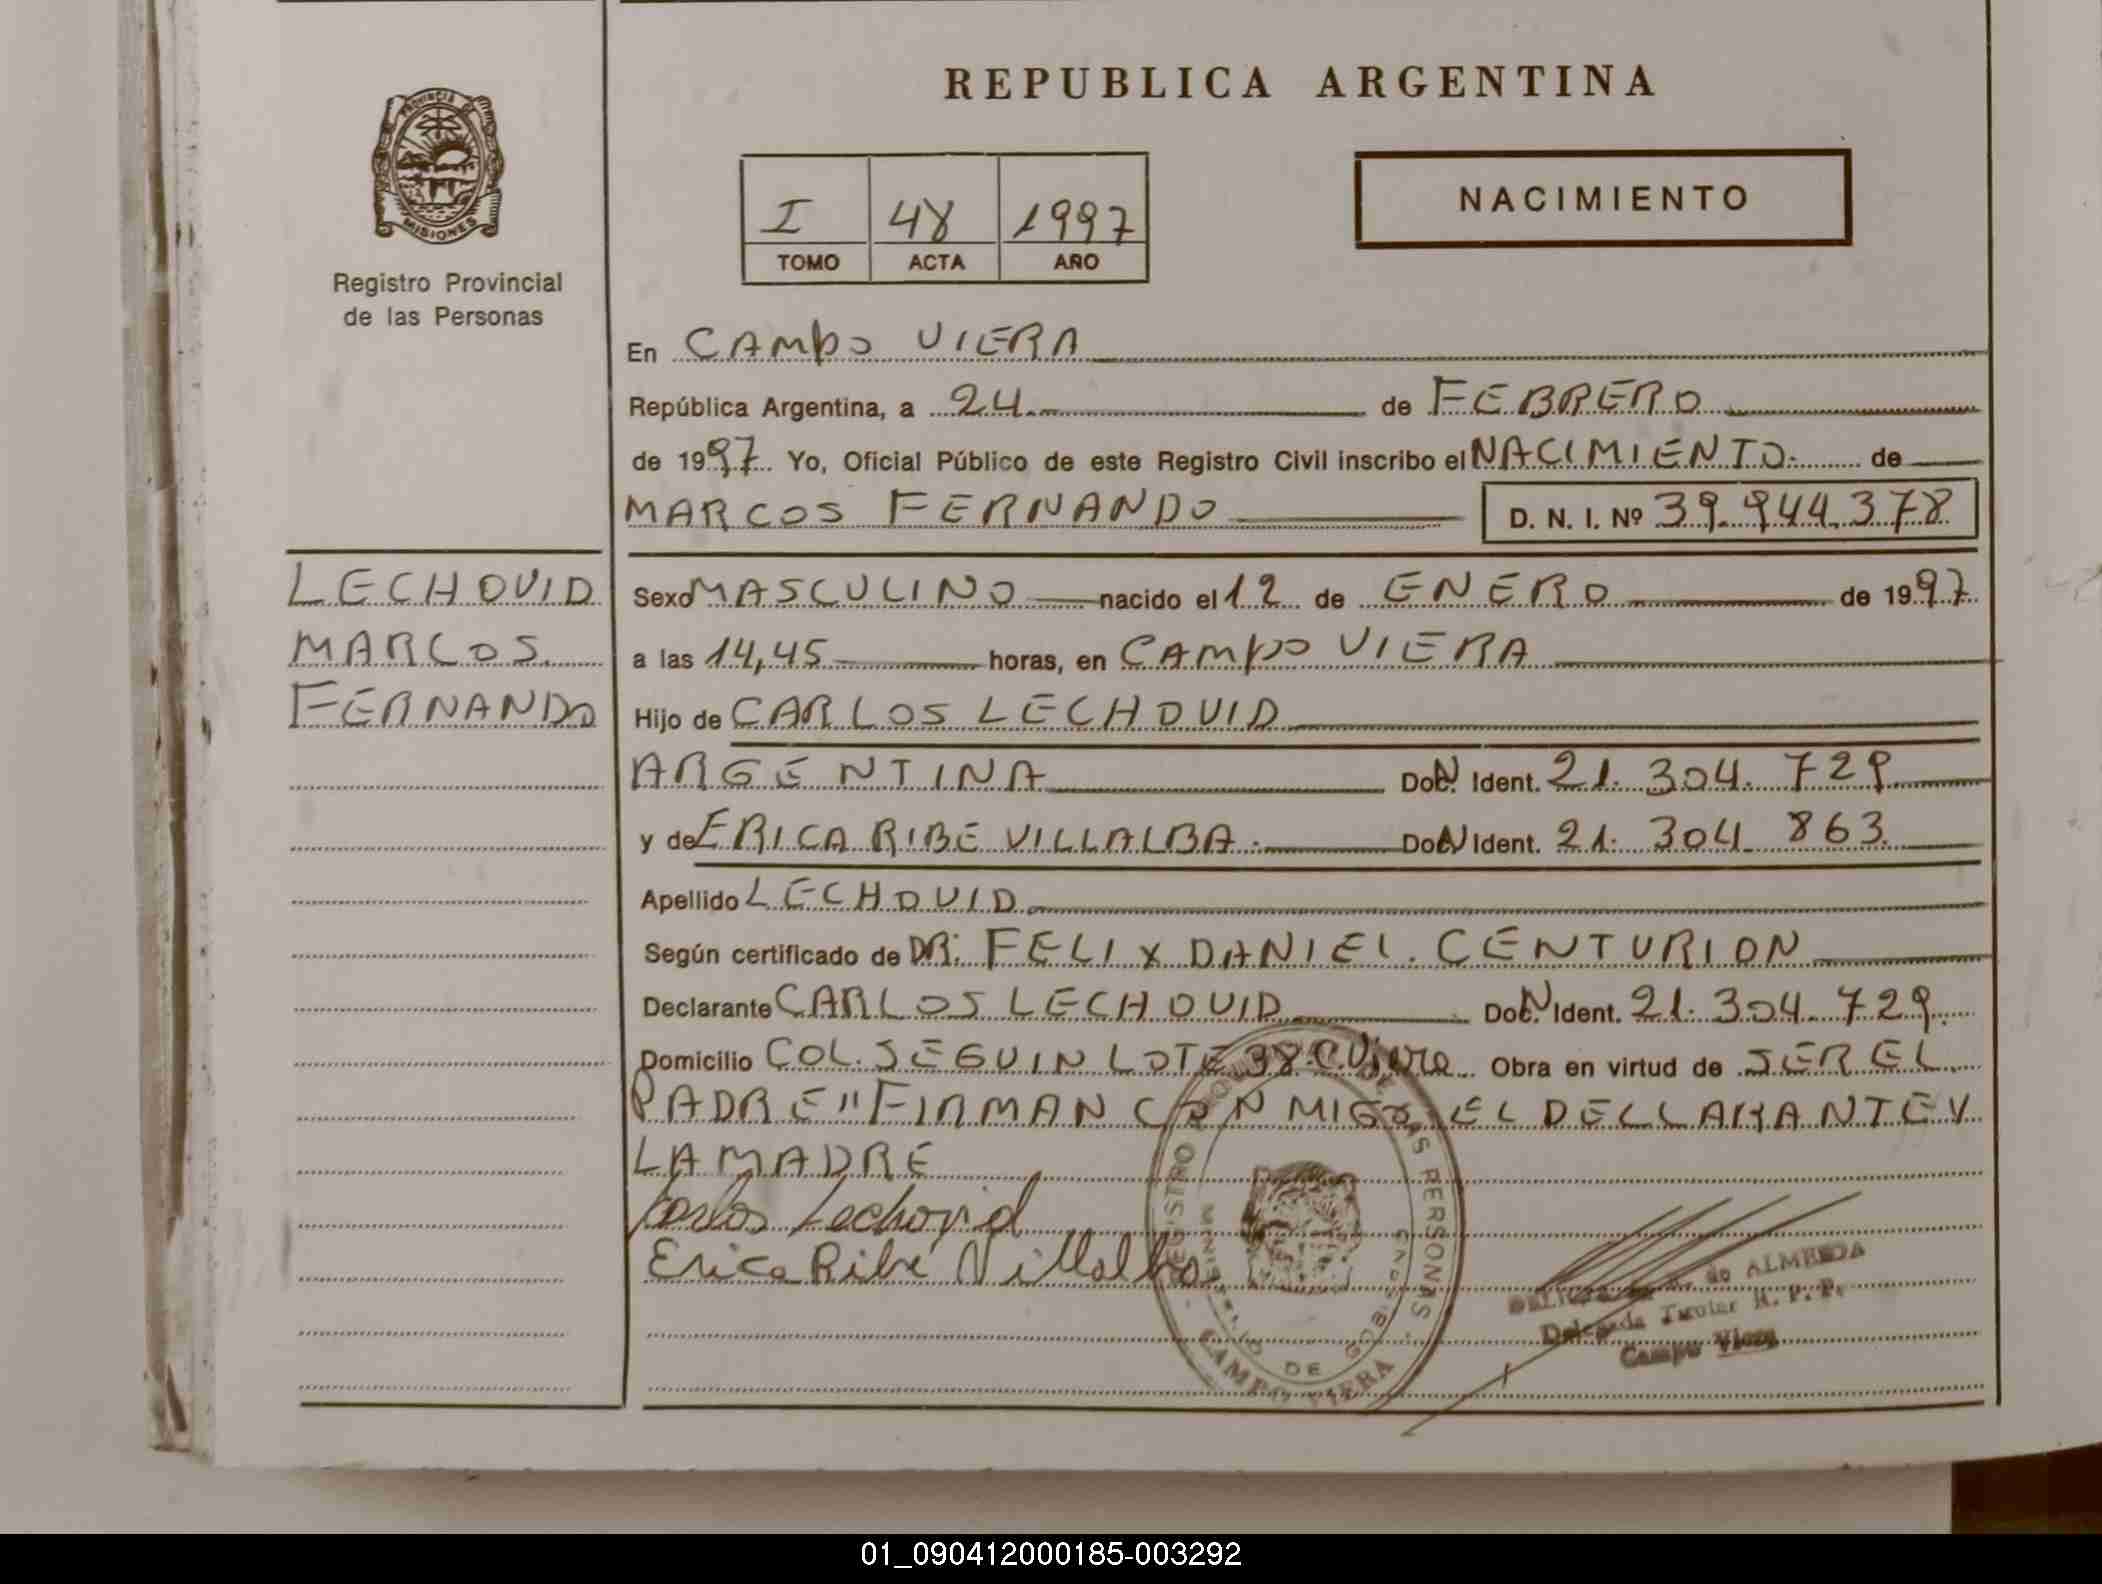 REPUBLICA ARGENTINA
PROVINCIA DE
MISIONES
Registro Provincial
de las Personas
I 48 1997
TOMO ACTA AÑO
NACIMIENTO
En CAMPO VIERA
República Argentina, a 24 de FEBRERO
de 1997. Yo, Oficial Público de este Registro Civil inscribo el NACIMIENTO de
MARCOS FERNANDO D. N. I. Nº 39.944.378
LECHOVID
MARCOS
FERNANDO
Sexo MASCULINO nacido el 12 de ENERO de 1997
a las 14,45 horas, en CAMPO VIERA
Hijo de CARLOS LECHOVID
ARGENTINA Doc. N Ident. 21.304.729
y de ERICA RIBE VILLALBA Doc. N Ident. 21.304.863
Apellido LECHOVID
Según certificado de DR. FELIX DANIEL CENTURION
Declarante CARLOS LECHOVID Doc. N Ident. 21.304.729
Domicilio COL. SEGUIN LOTE 38 C. Viera Obra en virtud de SER EL
PADRE" FIRMAN CONMIGO, EL DELLARANTE Y
LA MADRE
Carlos Lechovid
Erica Ribe Villalba
REGISTRO DE LAS PERSONAS
MINISTERIO DE GOBIERNO
CAMPO VIERA
de ALMEIDA
Delegada Titular R. P. P.
Campo Viera
01_090412000185-003292